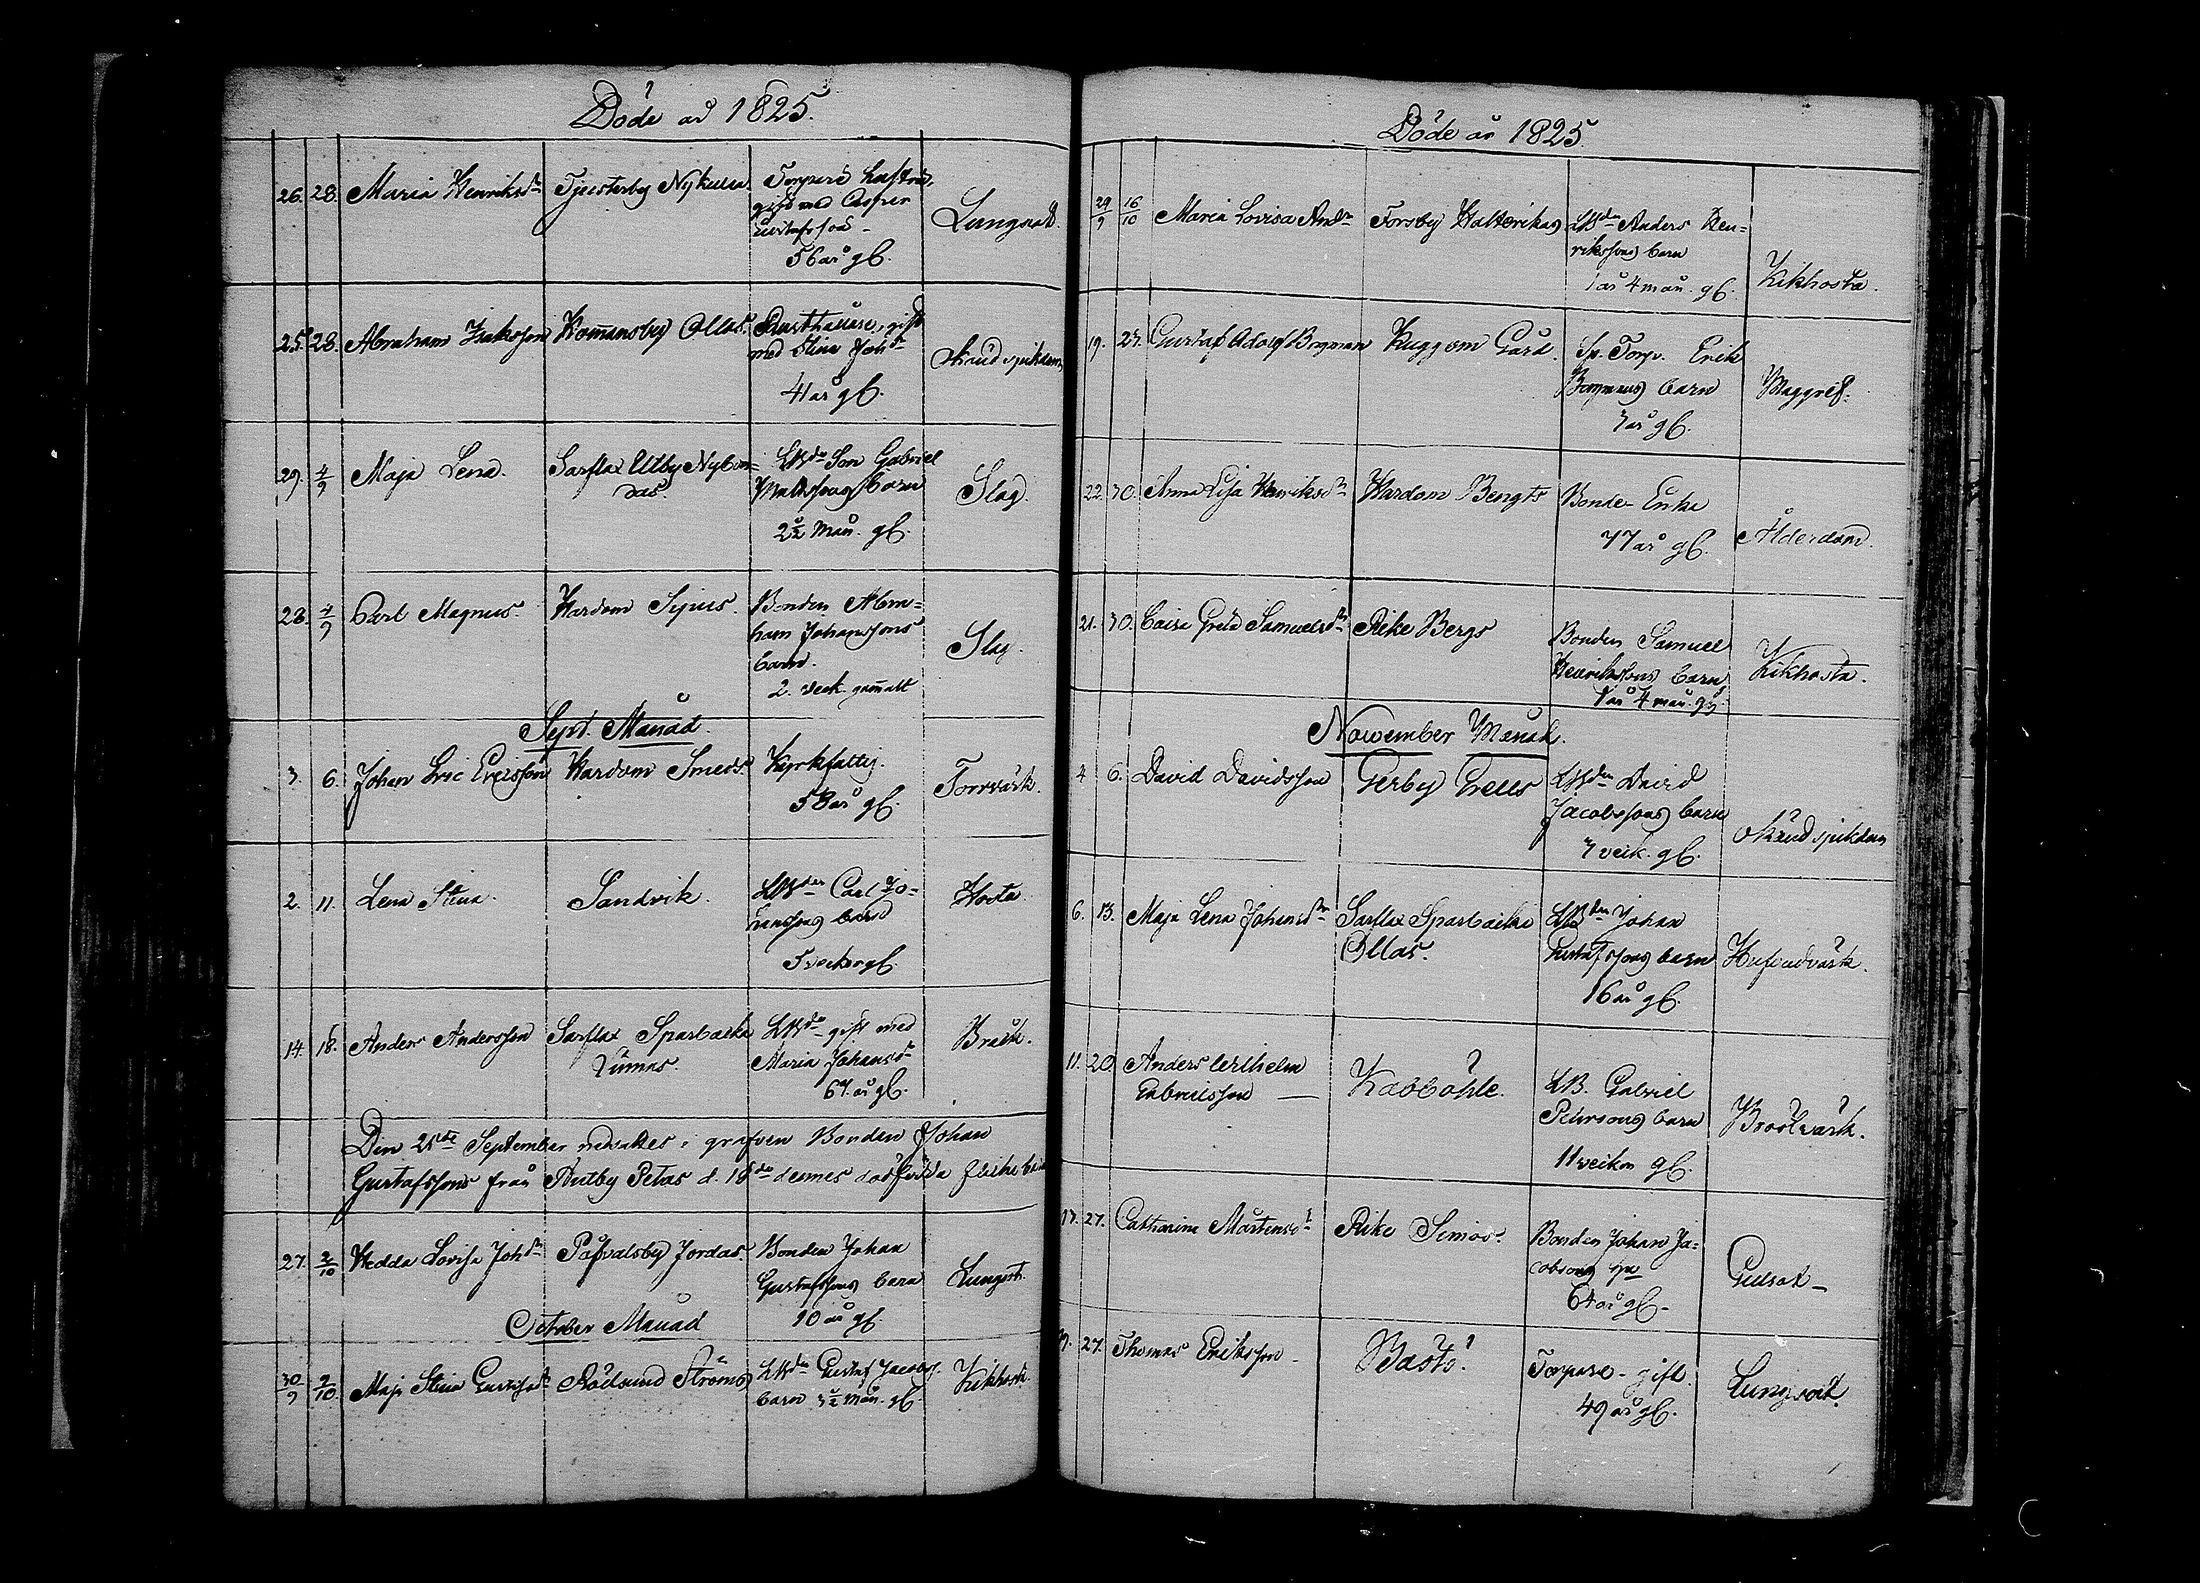 Döde år 1825.
26. 28. Maria Henriksdr Tjusterby Nykulla Torpare hustru,
gift med Casper
Gustafsson
56 år gl.
Lungsot.
25. 28. Abraham Isaksson Homansby Ollas. Rusthållare, gift
med Stina Johdr
41 år gl.
okänd sjukdom
29. 4/9 Maja Lena. Sarflax Utby Nybon=
das.
LBde Son Gabriel
Mattssons barn
2 1/2 Mån. gl.
Slag.
28. 4/9 Carl Magnus. Hardom Sipius. Bonden Abra=
ham Johanssons
barn.
2. veck. gammalt
Slag.
Sept. Månad.
3. 6. Johan Eric Ericsson Hardom Smeds. Kyrkfattig.
58 år gl.
Torrvärk.
2. 11. Lena Stina. Sandvik. LBden Carl Jo=
hanssons barn
5 veckor gl.
Hosta
14. 18. Anders Andersson Sarflax Sparbacka
LBde gift med
Maria Johansdr
67. år gl.
Bråck.
Den 25de September nedsattes i grafven Bonden Johan
Gustafssons från Antby Petas d. 18de dennes dödfödda flicke barn
27. 2/10 Hedda Lovisa Johdr Påfvalsby Jordas. Bonden Johan
Gustafssons barn
10 år gl.
Lungsot.
October Månad
30/9 2/10. Maja Stina Gustafsdr Rödsund Ströms LBde Gustaf Jacobss.
barn 3 1/2 mån. gl.
Kikhosta
Döde år 1825.
29/9 16/10 Maria Lovisa Andr Forsby Walterikas LBde Anders Hen=
rikssons barn
1 år 4 mån. gl.
Kikhosta.
19. 23. Gustaf Adolf Boxman Kuggom Gård. Sp. Torp. Erik
Boxmans barn
3 år gl.
Maggref.
22. 30. Anna Lisa Henriksdr Hardom Bengts Bonde-Enka
77 år gl.
Ålderdom.
21. 30. Caisa Greta Samuelsdr Rike Bergs
Bonden Samuel
Henrikssons barn
1 år 4 mån. gl.
Kikhosta.
November Månad.
4 6. David Davidsson Gerby Grells LBden David
Jacobssons barn
7 veck. gl.
okänd sjukdom
6. 13. Maja Lena Johansdr Sarflax Sparbacka
Ollas.
LBden Johan
Gustafssons barn
16 år gl.
Hufvudvärk.
11. 20. Anders Wilhelm
Gabrielsson
Kabböhle.
LB. Gabriel
Peterssons barn
11 veckor gl.
Bröstvärk.
17. 27. Catharina Mårtensdr Rike Simos. Bonden Johan Ja=
cobssons
64 år gl.
Gulsot
27. Thomas Eriksson Bastö. Torpare - gift.
49 år gl.
Lungsot.